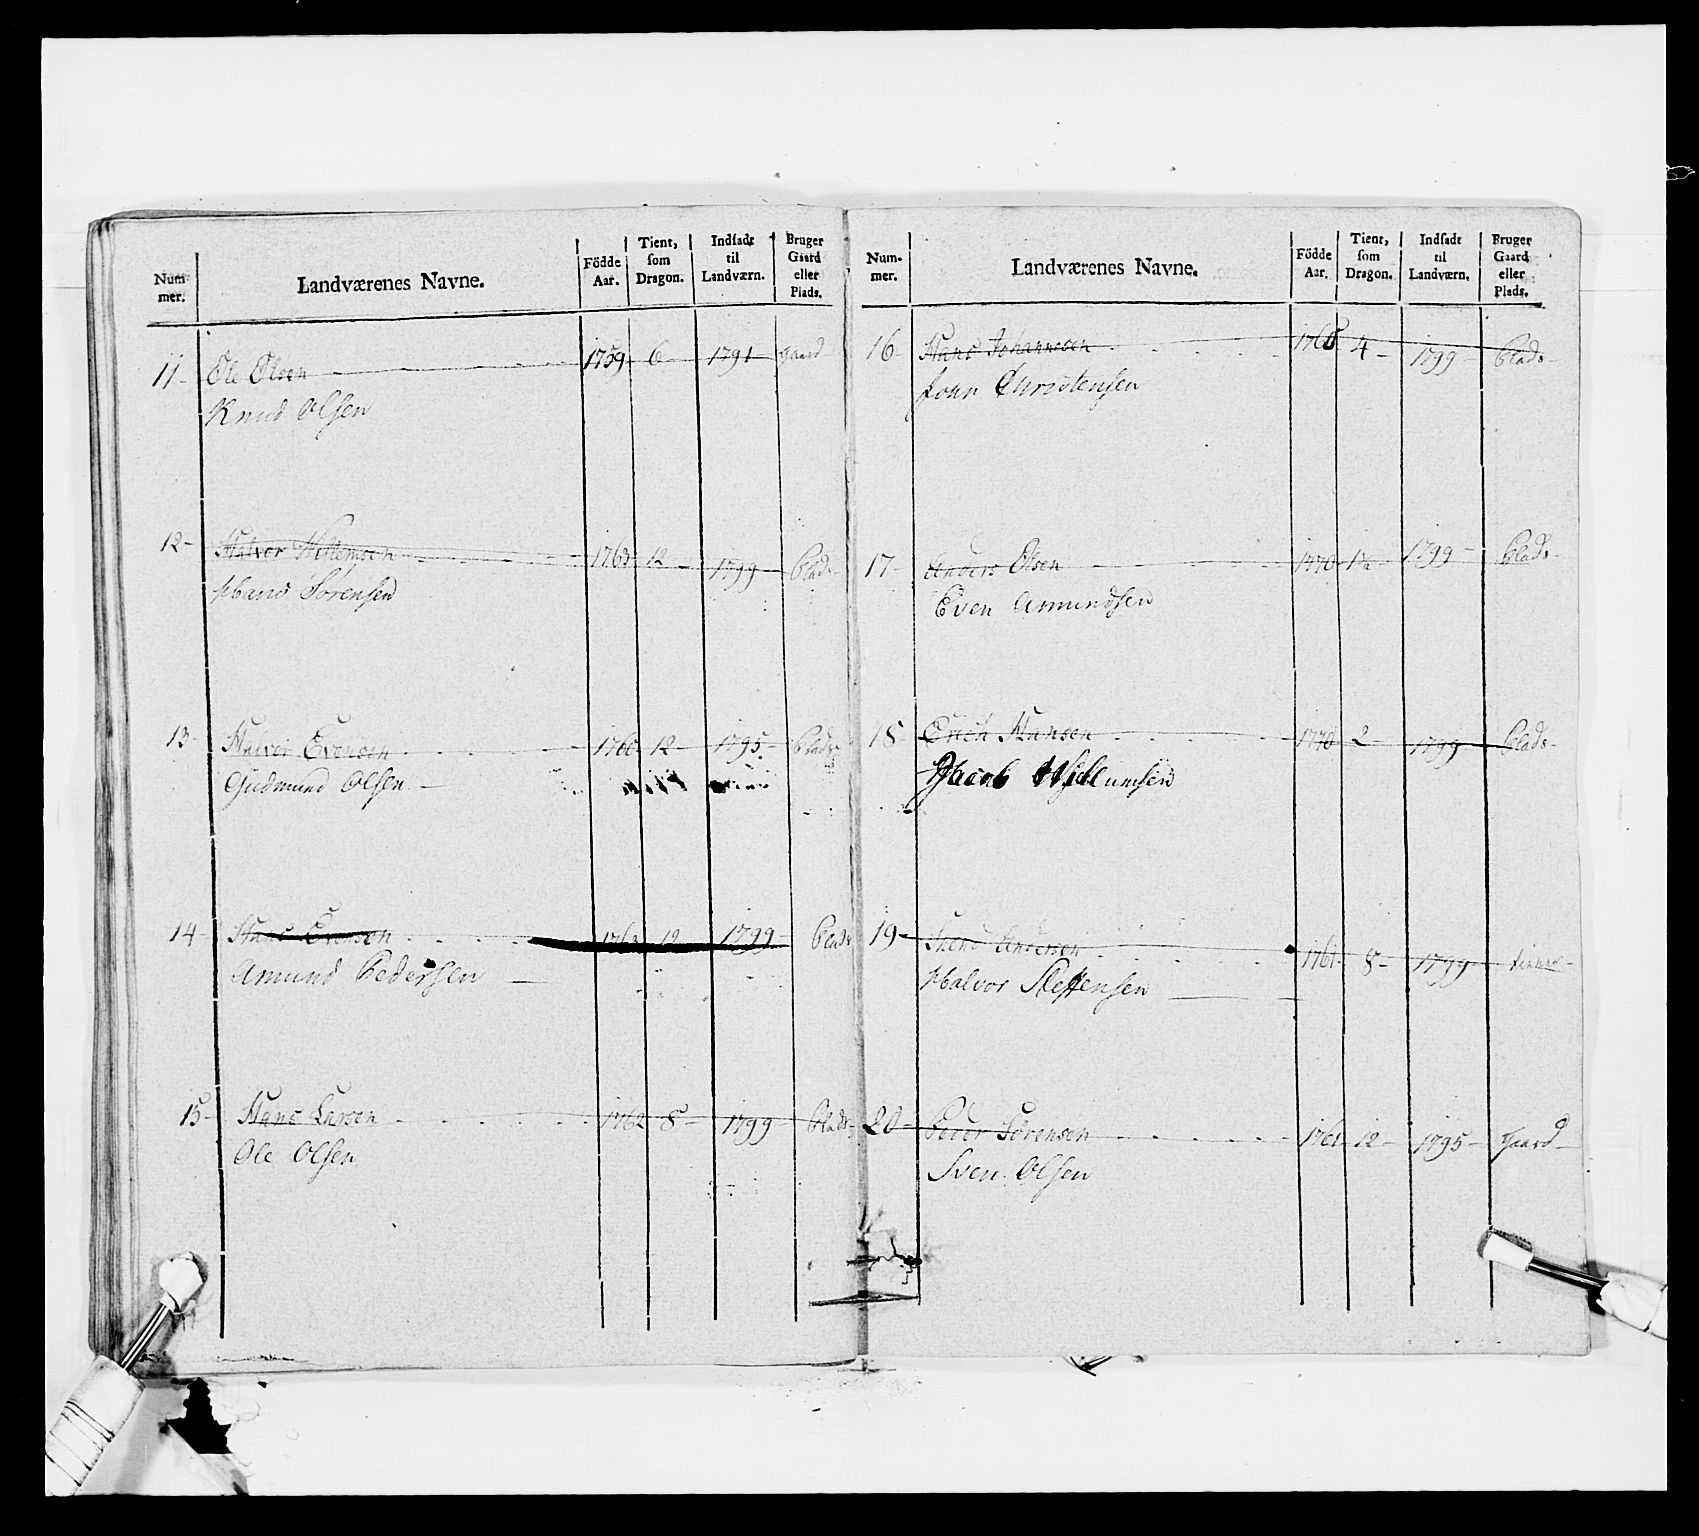 Nummer. Landværenes Navne. Födde Aar. Tient, som Dragon. Indsadt til Landværn. Bruger Gaard eller Plads.
11- Ole Olsen 1759- 6- 1791- Gaard
Knud Olsen
12- Halvor 1763- 12- 1799- Plads
Hans Sörensen
13- Halvor Evensen 1760- 12- 1795- Plads
Gudmund Olsen
14- Hans Evensen 1763 12 1799- Plads
Amund Pedersen
15- Hans Larsen 1762 8- 1799- Plads
Ole Olsen
Nummer. Landværenes Navne. Födde Aar. Tient, som Dragon. Indsadt til Landværn. Bruger Gaard eller Plads.
16- Hans Johannesen 4- 1799- Plads-
John Christensen
17- Anders Olsen 1770- 1799- Plads-
Even Amundsen
18 Erich Hansen 1770 2- 1799- Plads-
Jacob Willumsen
19- Andersen 1761- 8- 1799-
Halvor Steffensen
20- Peder Sörensen 1761- 12- 1795- Gaard-
Sven Olsen